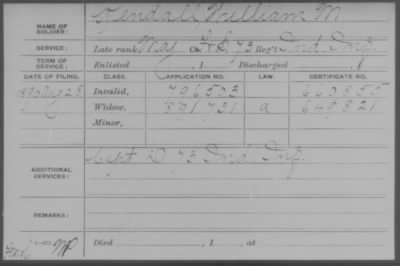 NAME OF SOLDIER: Kendall William M
SERVICE: Late rank Maj, Co. F.S., 73 Reg't Ind. Inf.
TERM OF SERVICE: Enlisted , 1 Discharged , 1
DATE OF FILING. CLASS. APPLICATION NO. LAW. CERTIFICATE NO.
1890 Aug 28 Invalid, 796503 640855
Widow, 891731 a 649821
Minor,
ADDITIONAL SERVICES: Capt D. 73 Ind. Inf.
REMARKS:
Died , 1 , at